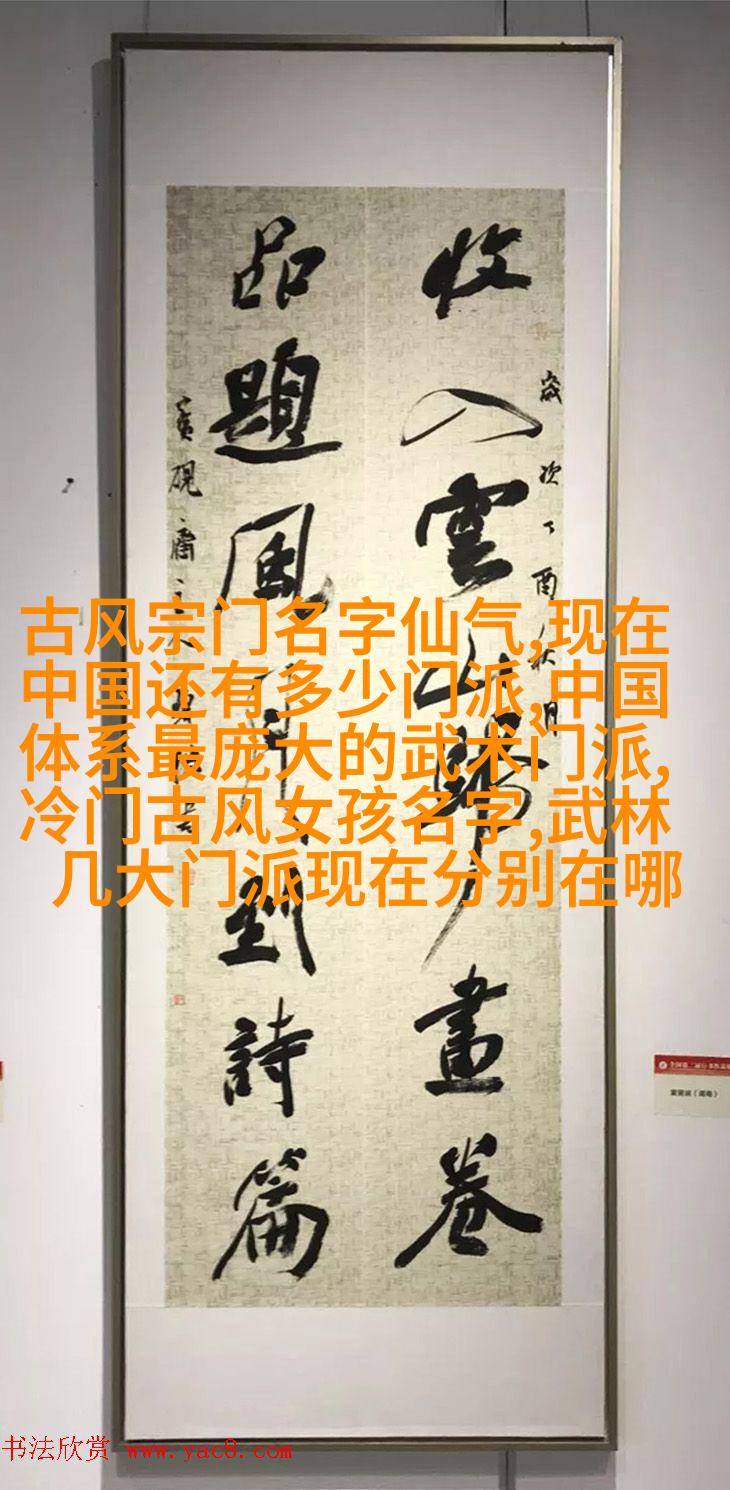 收入雲山歸畫卷
歲次丁酉秋月
品題風月到詩篇
古风宗门名字仙气,现在
中国还有多少门派,中国
体系最庞大的武术门派,
冷门古风女孩名字,武林
几大门派现在分别在哪
书法欣赏 www.yac8.com